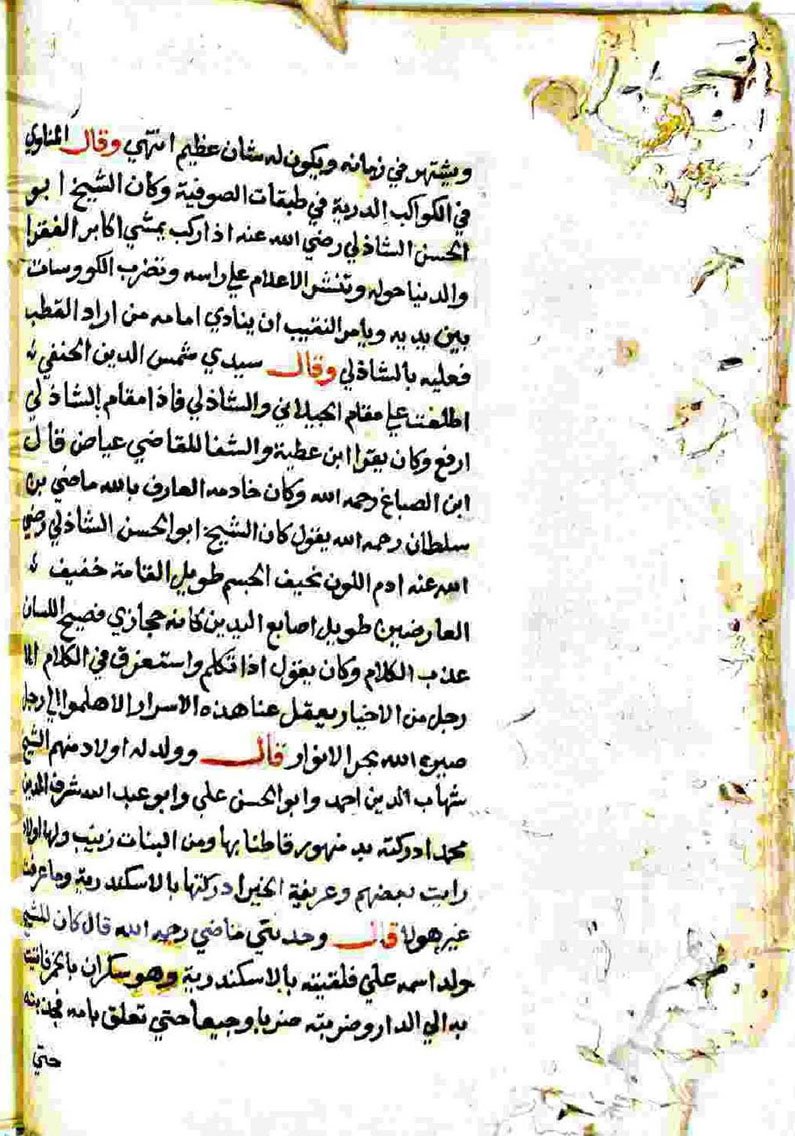 ويشتهر في زمانه ويكون له شان عظيم انتهي وقال المناوي
في الكواكب الدرية في طبقات الصوفية وكان الشيخ ابو
الحسن الشاذلي رضي الله عنه اذا ركب يمشي اكابر الفقرا
والدنيا حوله وتنشر الاعلام علي راسه وتضرب الكووسات
بين يديه ويامر النقيب ان ينادي امامه من اراد القطب
فعليه بالشاذلي وقال سيدي شمس الدين الحنفي
اطلعت علي مقام الجيلاني والشاذلي فاذا مقام الشاذلي
ارفع وكان يقرا ابن عطية والشفا للقاضي عياض قال
ابن الصباغ رحمه الله وكان خادمه العارف بالله ماضي بن
سلطان رحمه الله يقول كان الشيخ ابو الحسن الشاذلي رضي
الله عنه ادم اللون نحيف الجسم طويل القامة خفيف
العارضين طويل اصابع اليدين كانه حجازي فصيح اللسان
عذب الكلام وكان يقول اذا تكلم واستغرق في الكلام الا
رجل من الاخيار يعقل عنا هذه الاسرار الا هلموا الي رجل
صيره الله بحر الانوار قال وولد له اولاد منهم الشيخ
شهاب الدين احمد وابو الحسن علي وابو عبد الله شرف الدين
محمد ادركته بدمنهور قاطنا بها ومن البنات زينب ولها اولاد
رايت بعضهم وعريفة الخير ادركتها بالاسكندرية وما عرفت
غير هولا قال وحدثني ماضي رحمه الله قال كان للشيخ
ولد اسمه علي فلقيته بالاسكندرية وهو سكران بالخمر فاتيت
به الي الدار وضربته ضربا وجيعا حتي تعلق بامه فجذبته
حتي